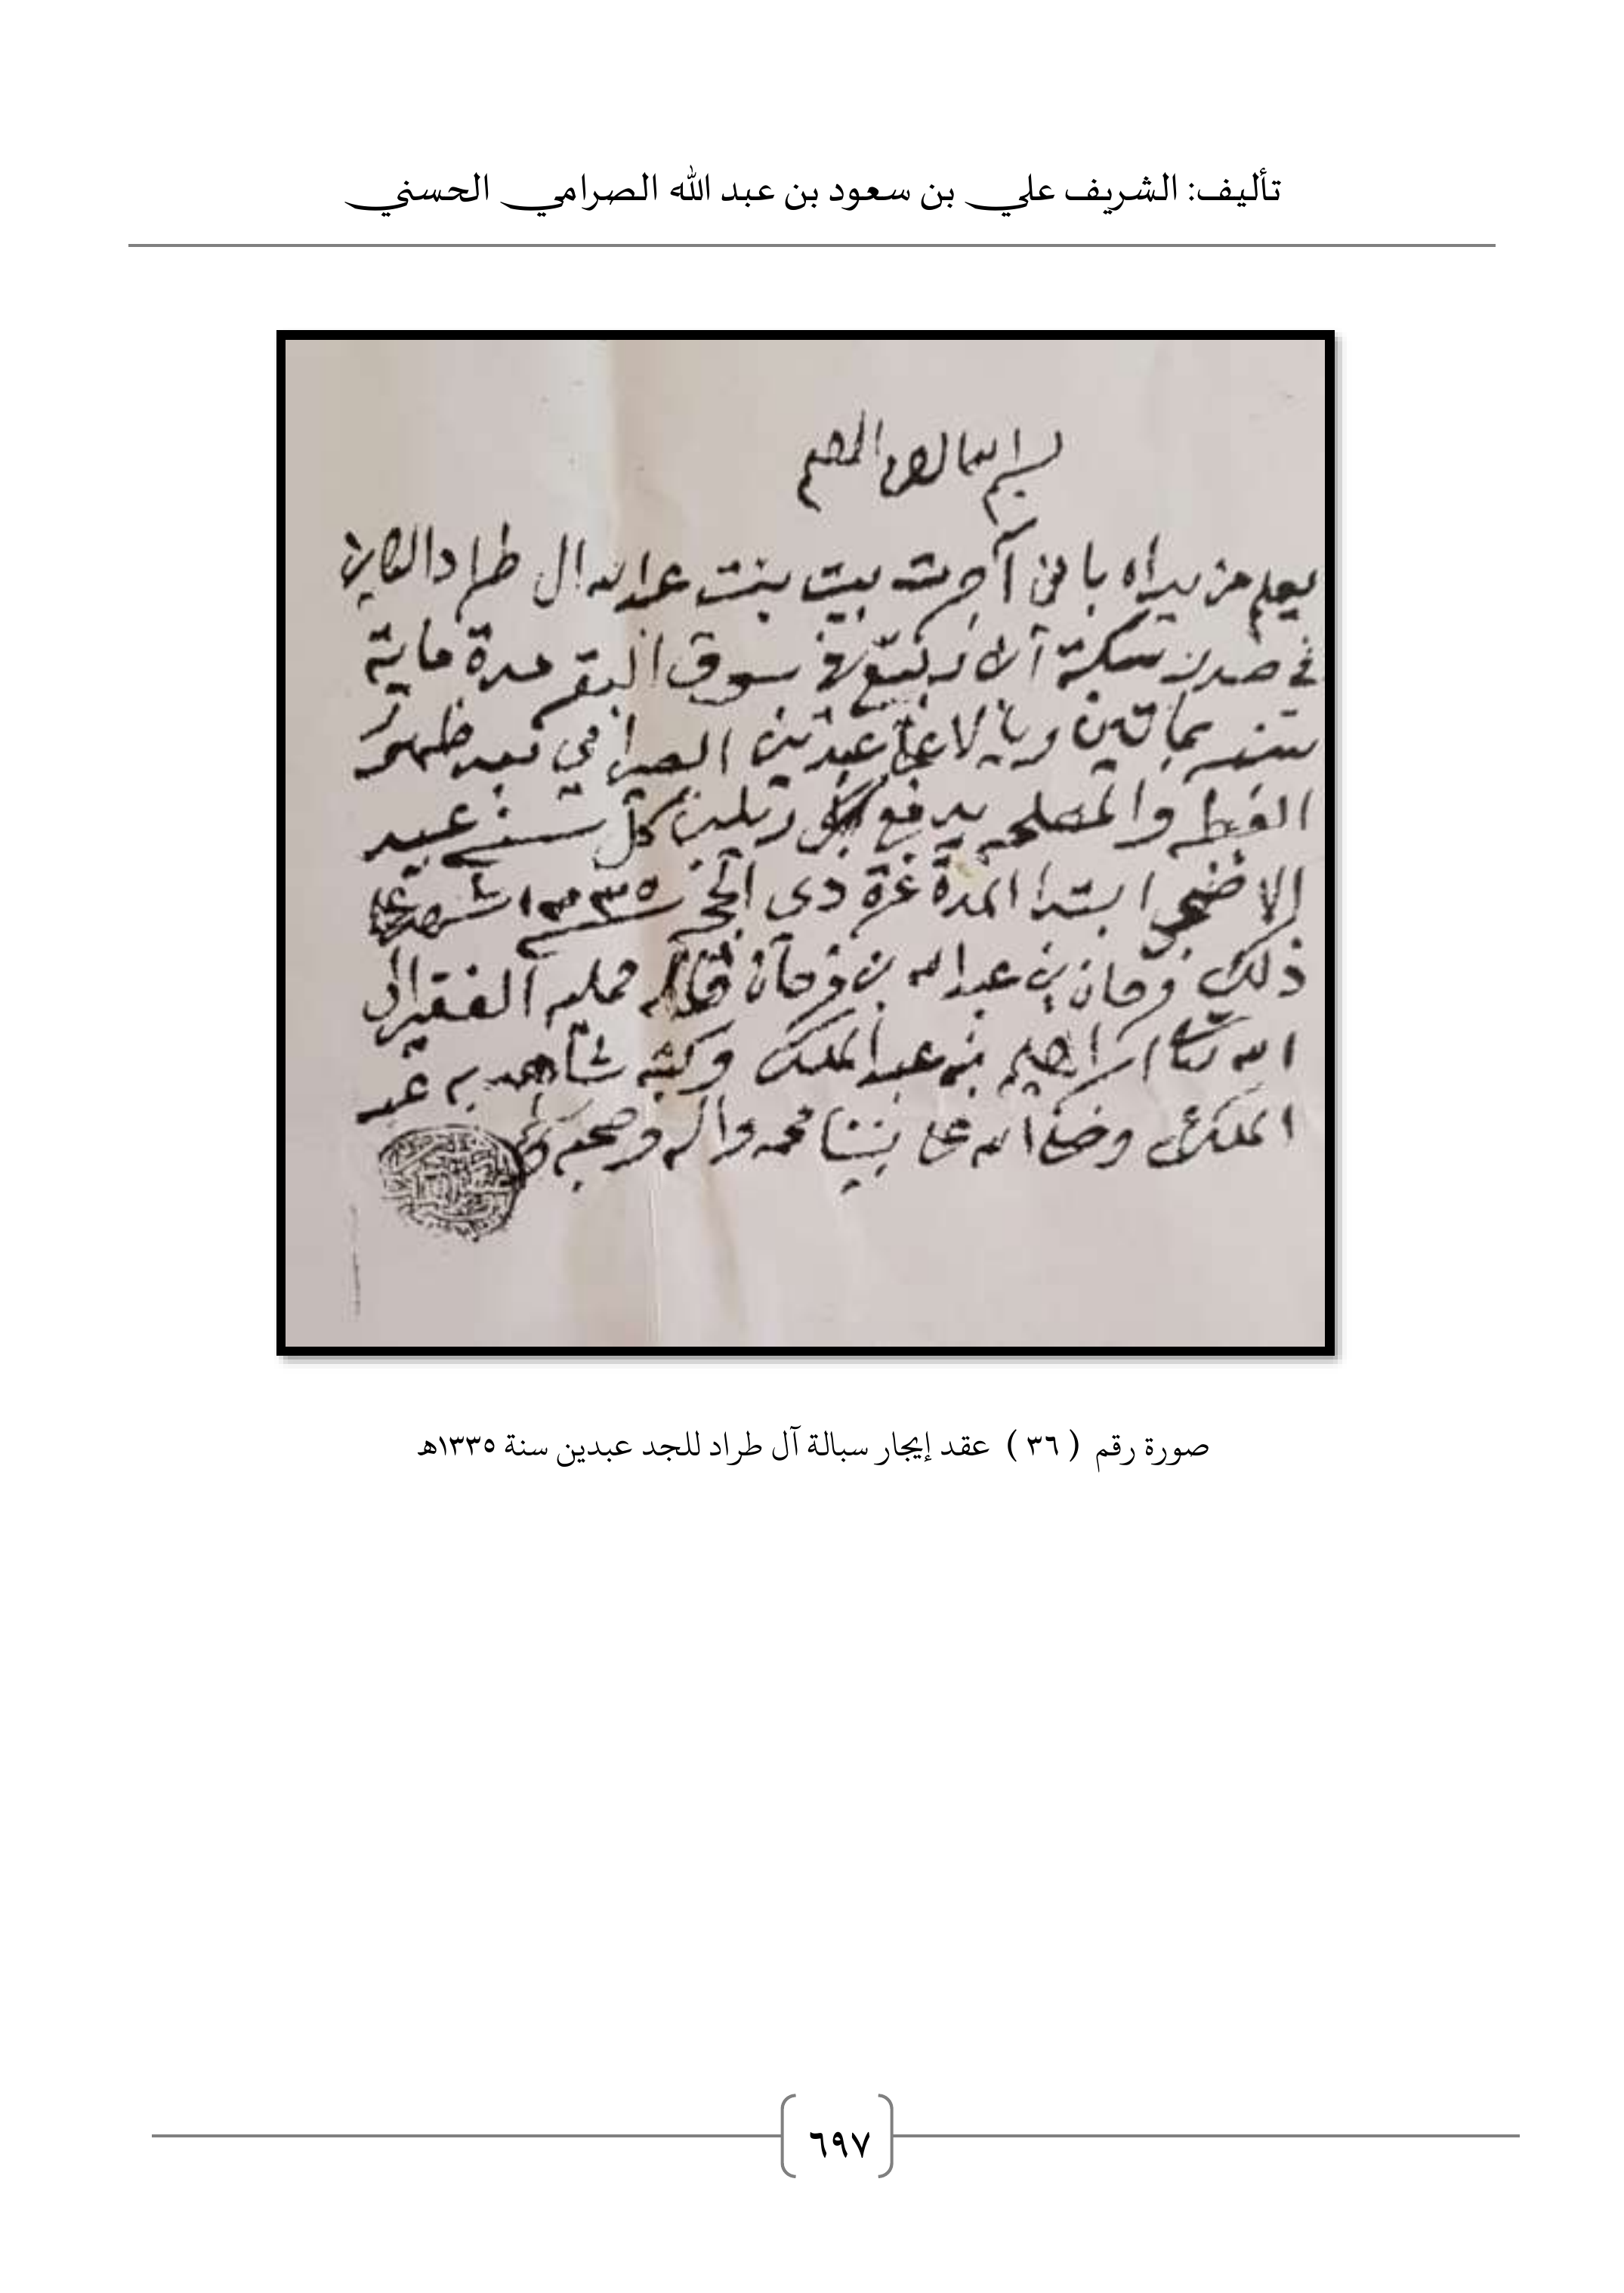 تأليف: الشريف علي بن سعود بن عبد الله الصرامي الحسني
بسم الله الرحمن الرحيم
يعلم من يراه باني آجرت بيت بنت عبدالله ال طراد الكاين
في سكة آل في سوق البقر مدة ماية
سنه ريالا على عبدين الصرامي بعد ظهور
الغبطه والمصلحه يدفع ريلين كل سنه عيد
الاضحى ابتدا المدة غرة ذى الحجه سنه ١٣٣٥ شهد على
ذلك فرحان بن عبدالله بن فرحان قاله ممليه الفقير الى
الله تعالى ابراهيم بن عبدالملك وكتبه شاهد به عبد
الملك وصلى الله على نبينا محمد واله وصحبه وسلم
صورة رقم ( ٣٦ ) عقد إيجار سبالة آل طراد للجد عبدين سنة ١٣٣٥هـ
٦٩٧